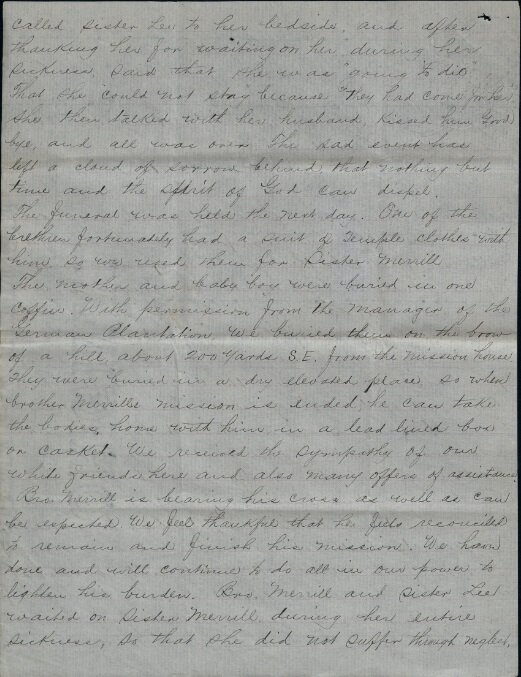 called Sister Lee to her bedside, and after
thanking her for waiting on her during her
sickness, said that she was "going to die"
That she could not stay because "they had come for her"
She then talked with her husband, kissed him Good
bye, and all was over. The sad event has
left a cloud of sorrow behind that nothing but
time and the spirit of God can dispel.
The funeral was held the next day. One of the
brethren fortunately had a suit of Temple clothes with
him so we used them for Sister Merrill
The mother and baby boy were buried in one
coffin. With permission from the manager of the
German Plantation we buried them on the brow
of a hill about 200 yards S.E. from the mission house.
They were buried in a dry elevated place so when
brother Merrills mission is ended he can take
the bodies home with him in a lead lined box
or casket. We received the sympathy of our
white friends here and also many offers of assistance
Bro. Merrill is bearing his cross as well as can
be expected. We feel thankful that he feels reconciled
to remain and finish his mission. We have
done and will continue to do all in our power to
lighten his burden. Bro. Merrill and Sister Lee
waited on Sister Merrill during her entire
sickness, so that she did not suffer through neglect,